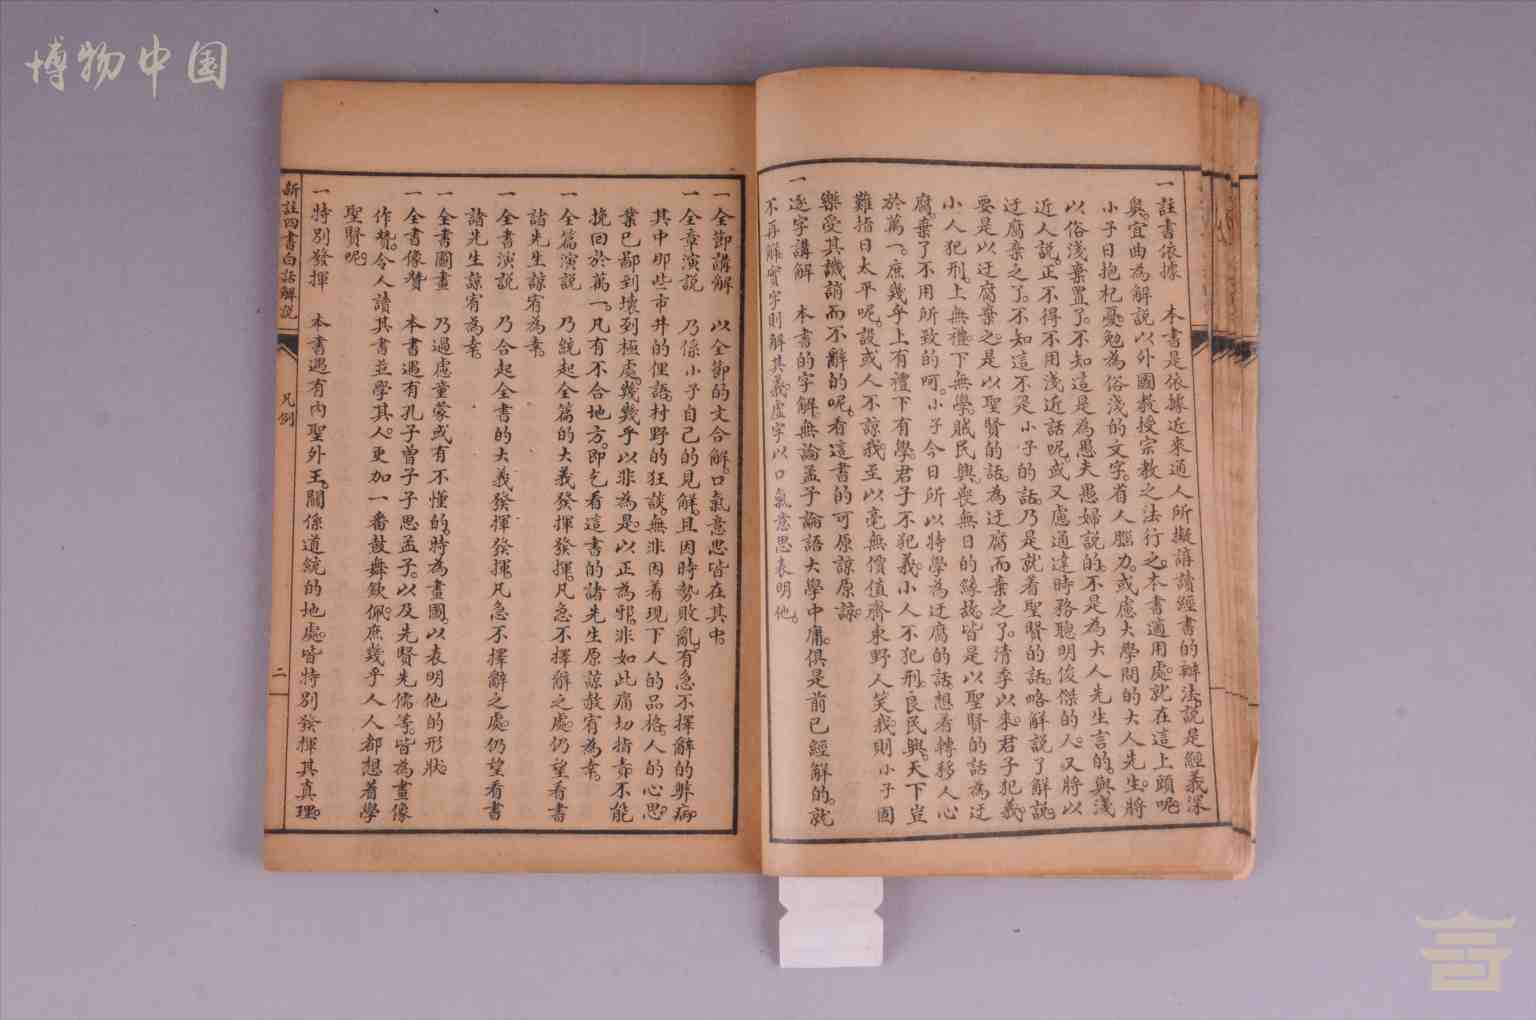 博物中国
一註書依據 本書是依據近來通人所擬讀經書的辦法說是經義深
奧宜曲為解說以外國教授宗教之法行之本書適用處就在這上頭呢
小子日抱杞憂勉為俗淺的文字省人腦力或慮大學問的大人先生將
以俗淺棄置了不知這是為愚夫愚婦說的不是為大人先生言的與淺
近人說正不得不用淺近話呢或又慮通達時務聰明俊傑的人又將以
迂腐棄之了不知這不是小子的話乃是就着聖賢的話略解說了解說
要是以迂腐棄之是以聖賢的話為迂腐而棄之了清季以來君子犯義
小人犯刑上無禮下無學賊民興喪無日的緣故皆是以聖賢的話為迂
腐棄了不用所致的呵小子今日所以特學為迂腐的話想着轉移人心
於萬一庶幾乎上有禮下有學君子不犯義小人不犯刑良民興天下豈
難指日太平呢設或人不諒我至以毫無價值齊東野人笑我則小子固
樂受其譏誚而不辭的呢看這書的可原諒原諒
一逐字講解 本書的字解無論孟子論語大學中庸俱是前已經解的就
不再解實字則解其義虛字以口氣意思表明他
一全節講解 以全節的文合解口氣意思皆在其中
一全章演說 乃係小子自己的見解且因時勢敗亂有急不擇辭的弊病
其中那些市井的俚語村野的狂談無非因着現下人的品格人的心思
業已鄙到壞到極處幾幾乎以非為是以正為邪非如此痛切指責不能
挽回於萬一凡有不合地方即乞看這書的諸先生原諒赦宥為幸
一全篇演說 乃統起全篇的大義發揮發揮凡急不擇辭之處仍望看書
諸先生諒宥為幸
一全書演說 乃合起全書的大義發揮發揮凡急不擇辭之處仍望看書
諸先生諒宥為幸
一全書圖畫 乃過慮童蒙或有不懂的特為畫圖以表明他的形狀
一全書像贊 本書遇有孔子曾子子思孟子以及先賢先儒等皆為畫像
作贊令人讀其書並學其人更加一番鼓舞欽佩庶幾乎人人都想着學
聖賢呢
一特別發揮 本書遇有內聖外王關係道統的地處皆特別發揮其真理
新註四書白話解說
凡例
二